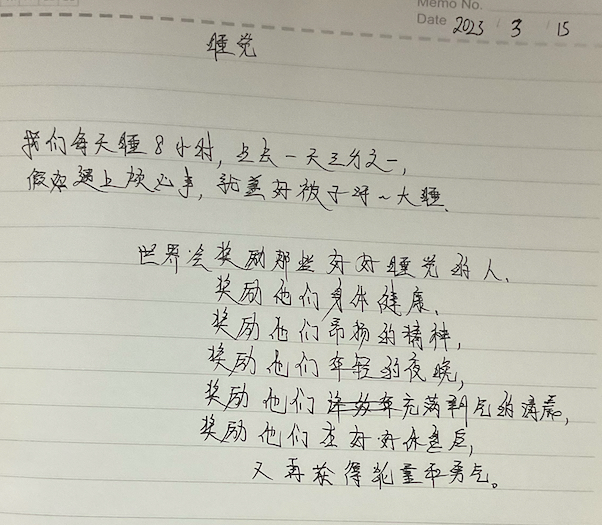 Memo No.
Date 2023 / 3 / 15
睡觉
我们每天睡8小时，占去一天三分之一，
假如遇上烦心事，就盖好被子呼~大睡。
世界会奖励那些好好睡觉的人，
奖励他们身体健康，
奖励他们昂扬的精神，
奖励他们年轻的夜晚，
奖励他们充满朝气的清晨，
奖励他们在好好休息后，
又再获得能量和勇气。